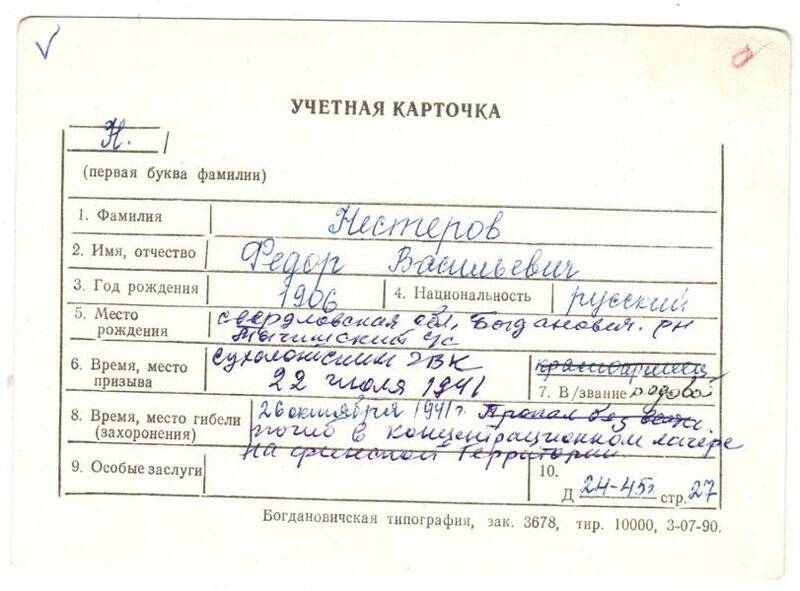 УЧЕТНАЯ КАРТОЧКА
Н.
(первая буква фамилии)
1. Фамилия Нестеров
2. Имя, отчество Федор Васильевич
3. Год рождения 1906 4. Национальность русский
5. Место рождения свердловская обл, Богданович. рн
Тыгишский с/с
6. Время, место призыва сухоложский ГВК
22 июля 1941
красноармеец
7. В/звание рядовой
8. Время, место гибели (захоронения) 26 октября 1941г. Пропал без вести.
погиб в концентрационном лагере
на финской территории
9. Особые заслуги
10.
Д 24-45г стр. 27
Богдановичская типография, зак. 3678, тир. 10000, 3-07-90.